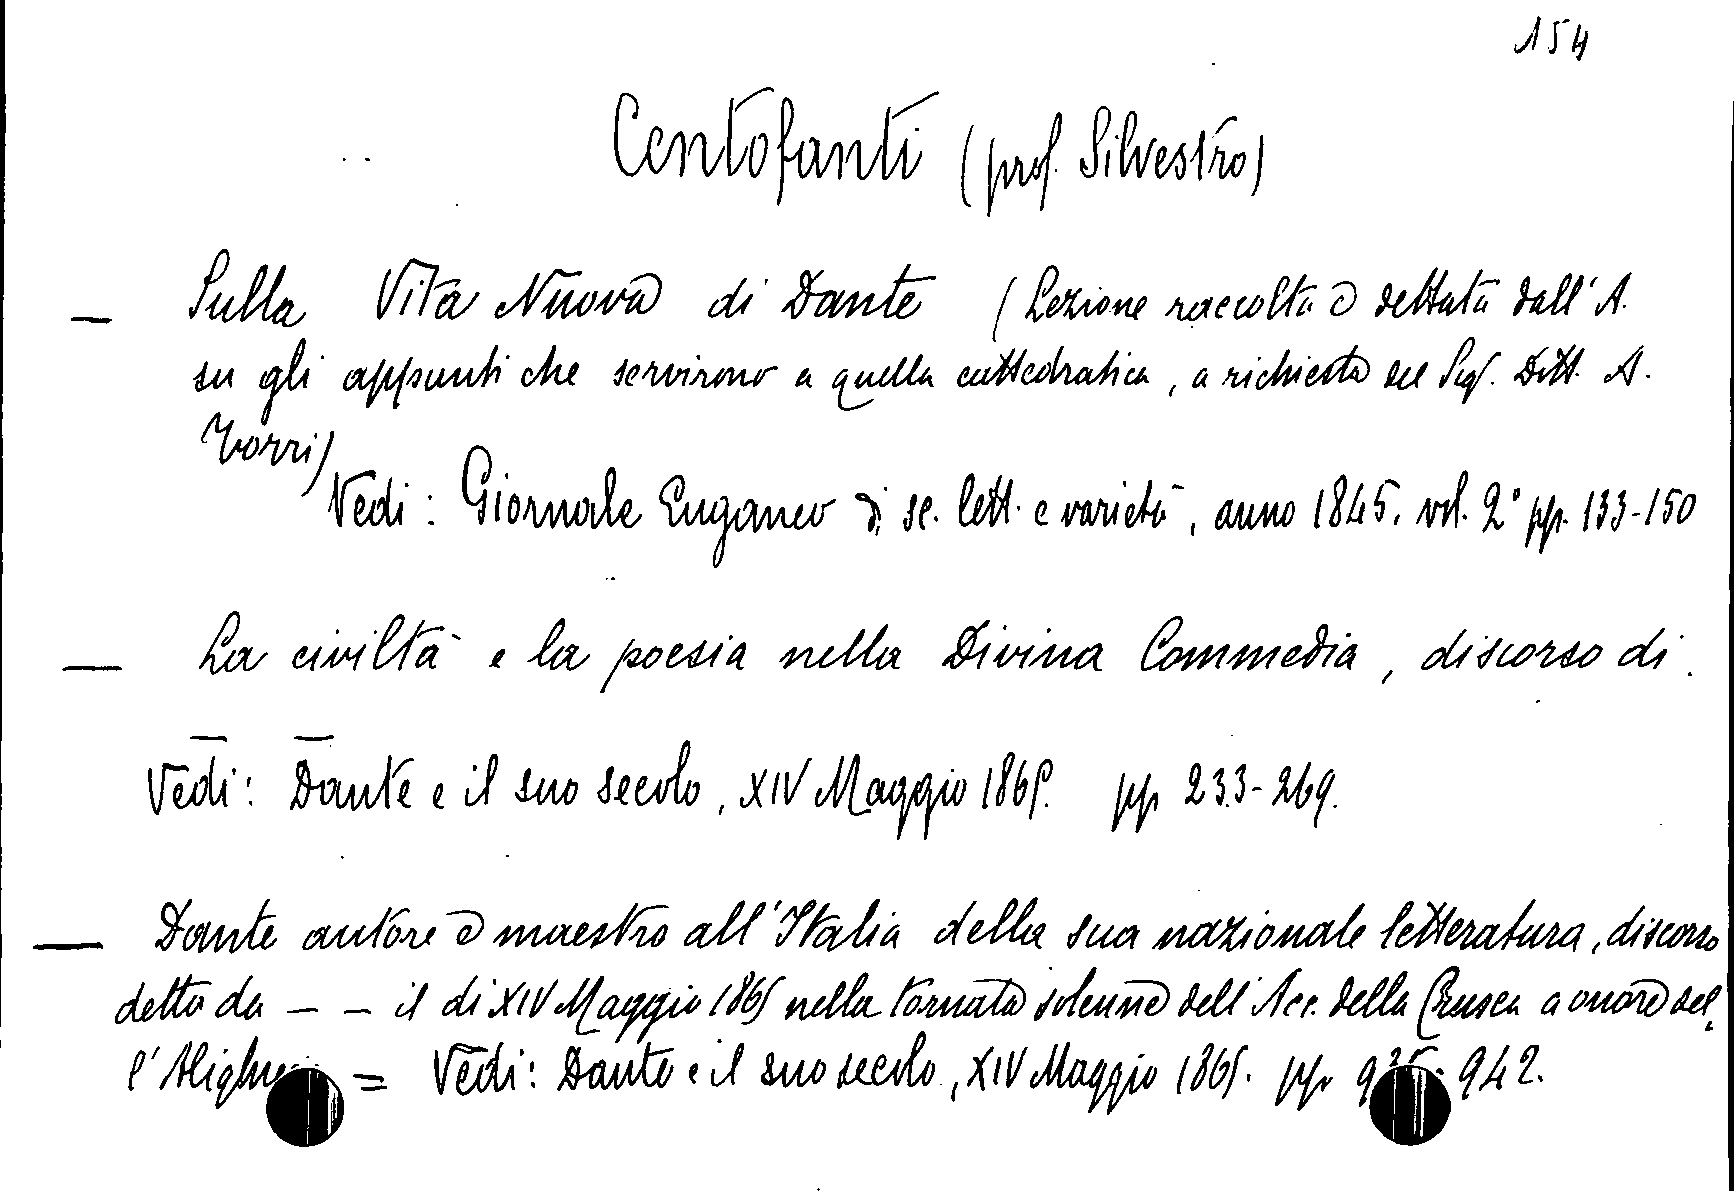 154
Centofanti (prof. Silvestro)
— Sulla Vita Nuova di Dante (Lezione raccolta e dettata dall'A.
su gli appunti che servirono a quella cattedratica, a richiesta del Sig. Dott. A.
Torri)
Vedi: Giornale Euganeo di sc. lett. e varietà, anno 1845. vol. 2° pp. 133-150
— La civiltà e la poesia nella Divina Commedia, discorso di.
— —
Vedi: Dante e il suo secolo, XIV Maggio 1865. pp 233-269.
— Dante autore e maestro all'Italia della sua nazionale letteratura, discorso
detto da — — il di XIV Maggio 1865 nella tornata solenne dell'Acc. della Crusca a onore del-
l' = Vedi: Dante e il suo secolo, XIV Maggio 1865. pp 935-942.